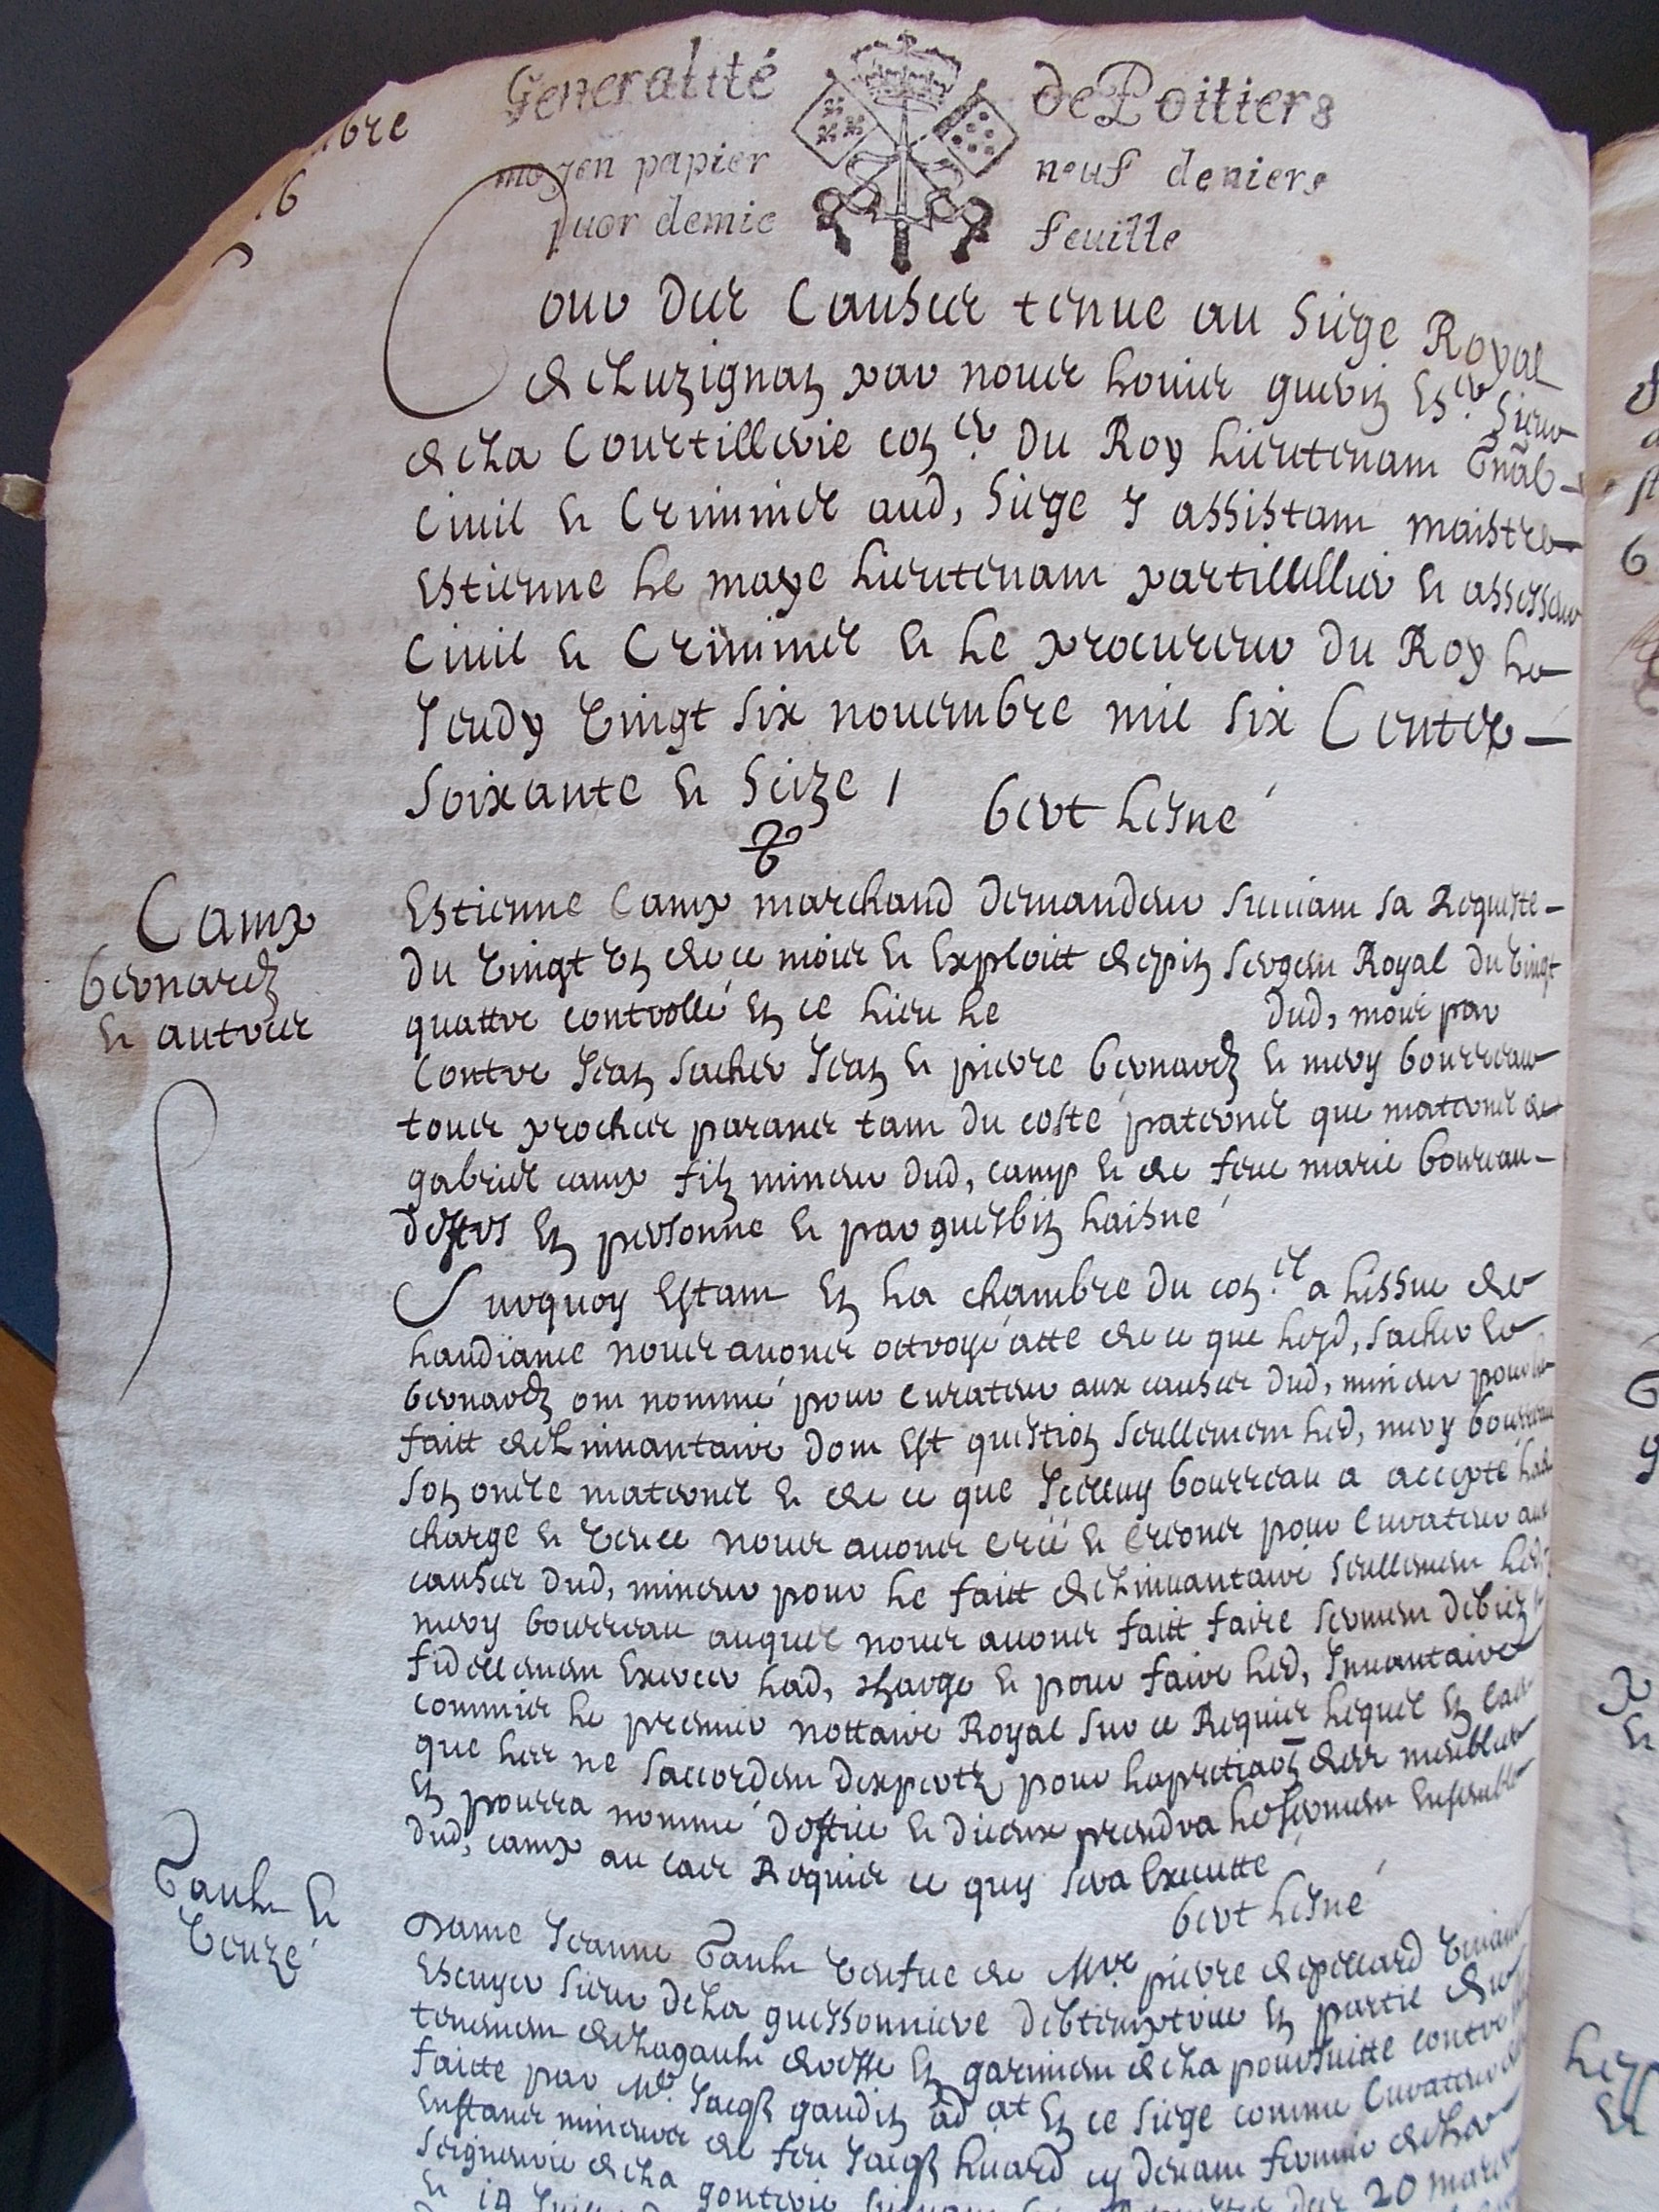 Generalité de Poitiers
moyen papier neuf deniers
pour demie feuille
bre
6
Cour des Causes tenue au Siege Royal
de Luzignan par nous Louis guerin Escr Sieur
de La Courtillerie coner Du Roy Lieutenant Gnal
Ciuil et Criminel aud, Siege y assistant maistre
Estienne Le maye Lieutenant partillullier et assesseur
Ciuil et Criminel et Le procureur Du Roy Le
Jeudy Vingt six nouembre mil six Centz
Soixante et Seize /
bert Lesné
Camp
bernardz
et autres
Estienne Camp marchand demandeur Suiuant sa Requeste
du Vingt de ce mois et Exploict depin Sergent Royal du Vingt
quattre controllé En ce Lieu Le dud, mois par
Contre Jean Sacher Jean et pierre bernardz et mery bourreau
tous proches parants tant du costé paternel que maternel de
gabriel camp filz mineur dud, camp et de feue marie boureau
deffrs En personne et par guesbin Laisné
Surquoy Estant En La chambre du conel a Lissue de
Laudiance nous auons octroyé atte de ce que Lesd, Sacher et
bernardz ont nommé pour Curateur aux causes dud, mineur pour Le
faict de Linuantaire dont Est question Seullement Led, mery bourreau
Son oncle maternel et de ce que Icelluy bourreau a accepté Lad
charge et Veu ce nous auons creé et creons pour Curateur aux
causes dud, mineur pour Le faict de Linuantaire Seullement Led,
mery bourreau auquel nous auons faict faire Serment de bien
fidellement Exercer Lad, charge et pour faire Led, Inuantaire
commis Le premier nottaire Royal sur ce Requis Lequel En cas
que Les ne Saccordent dexpertz pour Lapretiaon des meubles
En pourra nommé doffice et diceux prendra Le serment Ensemble
dud, camp au cas Requis ce quy sera Executté
bert Lesné
Gaulle et
Veuzé
Dame Jeanne Gaulle Veufue de Mre pierre depellard Viuant
Escuyer Sieur de La guessonniere debtemptrice En partie du
tenement de Lagaulle droisse En gariment de La poursuitte contre
faicte par Me Jacqs gaudin ad at En ce Siege comme Curateur
Enftans mineurs de feu Jacqs huard cy deuant fermier de La
Seigneurie de La gonterie
20 mars